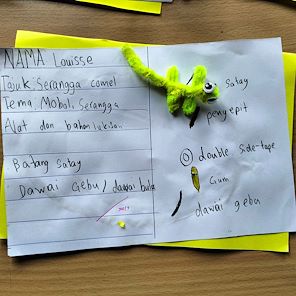 NAMA Louisse
Tajuk Serangga comel
Tema Moboli Serangga
Alat dan bahan lukisan
Batang satay
Dawai Gebu / dawai bulu
satay
penyepit
double side-tape
Gum
dawai gebu